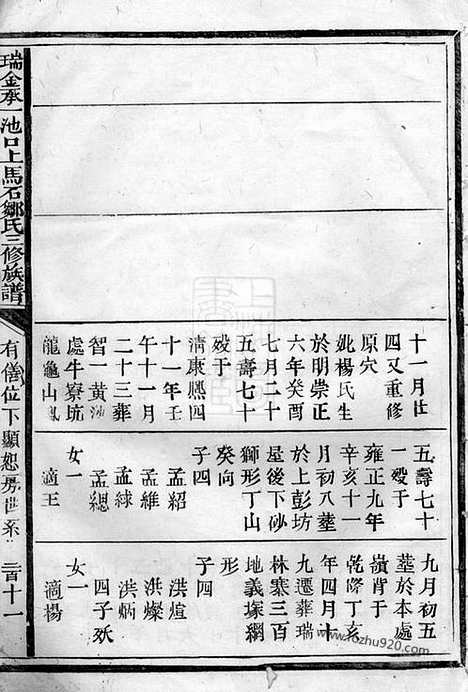 瑞金承一池口上馬石鄒氏三修族譜
有儁位下顯恕房世系
三百十一
十一月廿
四又重修
原穴
妣楊氏生
於明崇正
六年癸酉
七月二十
五壽七十
歿于
清康熙四
十一年壬
午十一月
二十三葬
智一黄沙
處牛寮坑
龍龜山鳳
五壽七十
一歿于
雍正九年
辛亥十一
月初八塟
於上彭坊
屋後下砂
獅形丁山
癸向
子四
孟紹
孟維
孟絿
孟緦
女一
適王
九月初五
塟於本處
嶺背于
乾隆丁亥
年四月十
九遷葬瑞
林寨三百
地義塚網
形
子四
洪煊
洪燦
洪炳
四子殀
女一
適楊
www.fozhu920.com